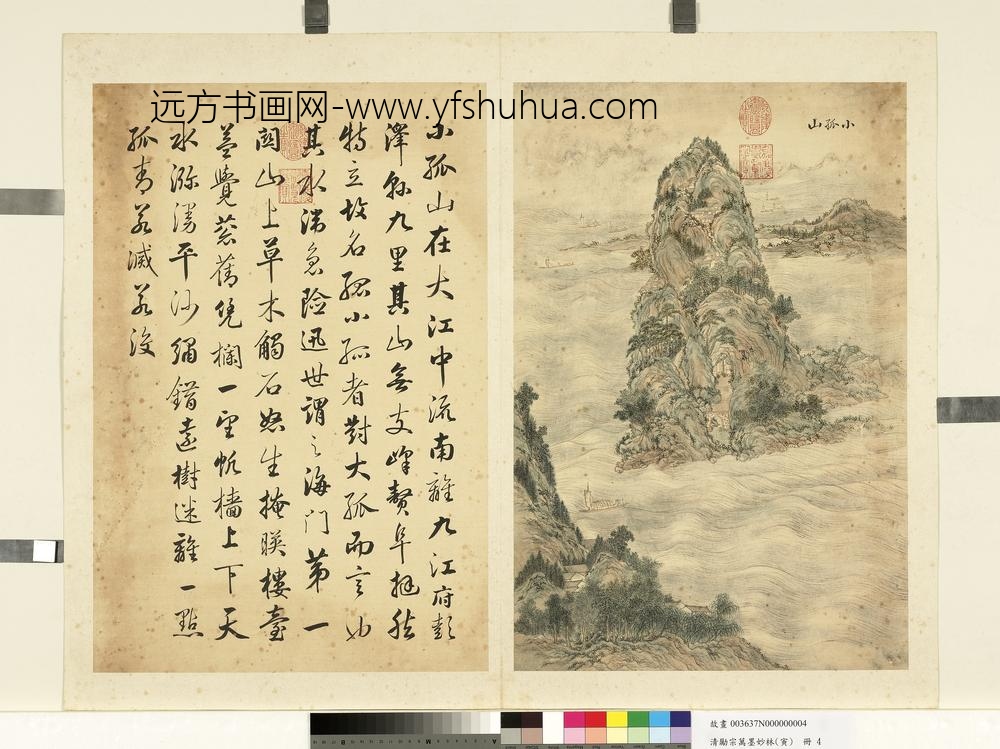 远方书画网-www.yfshuhua.com
小孤山
小孤山在大江中流南離九江府彭
澤縣九里其山無支峰贅阜挺然
特立故名孤小孤者對大孤而言也
其水湍急險迅世謂之海门第一
關山上草木觸石怒生掩暎樓臺
益覺蒼舊凭欄一望帆檣上下天
水瀰漫平沙繡錯遠樹迷離一點
孤青若滅若沒
故畫 003637N000000004
清勵宗萬墨妙林(寅) 冊 4